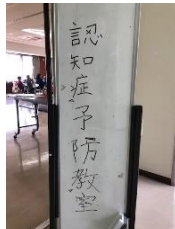 認知症予防教室